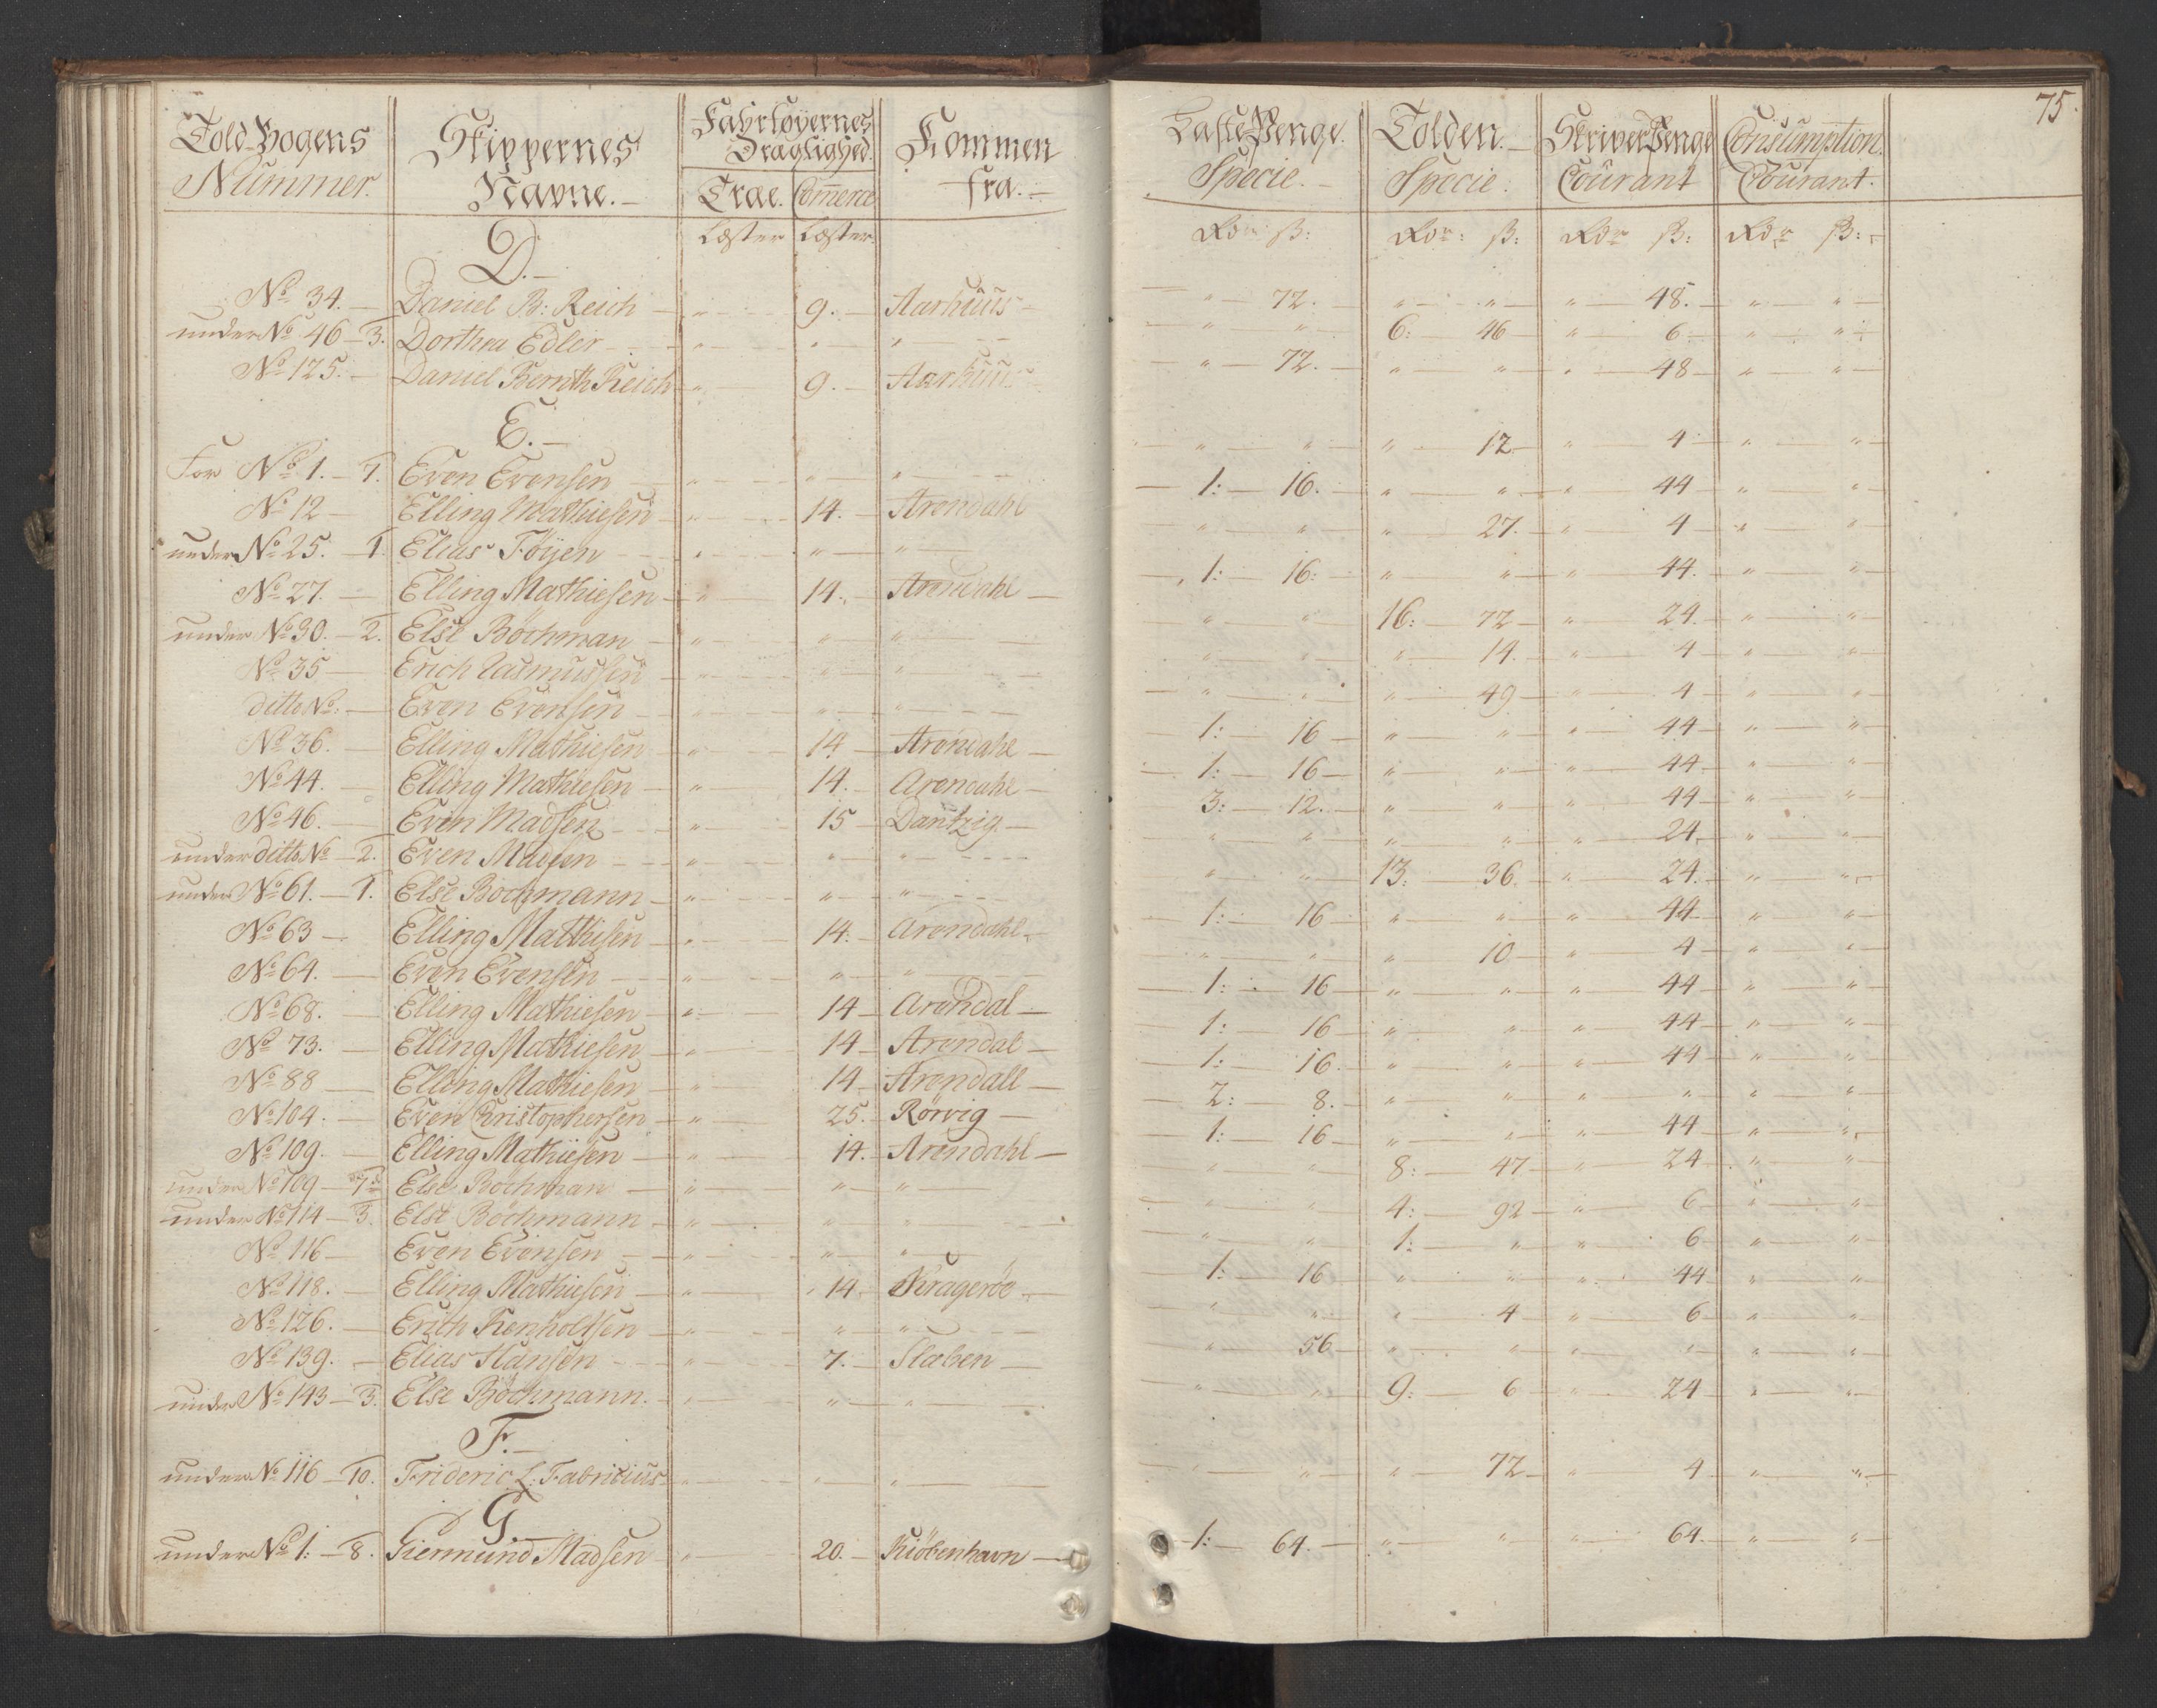 75.
Told-Bogens Nummer. Skippernes Navne. Fahrtøyernes Dragtighed. Kommen fra. Laste Penge. Specie. Tolden. Specie. Skriver Penge Courant Consumption. Courant.
Træ. Commerce
Læster Læster Rdr ß: Rdr: ß: Rdr ß: Rdr ß:
D.
No 34. Daniel B: Reich " 9. Aarhuus " 72. " " " 48. " "
under No 46-3. Dorthea Edler " " " " " 6: 46 " 6 " "
No 125. Daniel Bernth Reich " 9. Aarhuus " 72. " " " 48 " "
E.
For No 1.-7. Even Evensen " " " " " " 12 " 4 " "
No 12 Elling Mathiesen " 14. Arendahl 1: 16. " " " 44 " "
under No 25.-1. Elias Föyen " " " " " " 27. " 4 " "
No 27. Elling Mathiesen " 14. Arendahl 1: 16: " " " 44. " "
under No 30.-2. Else Böchman " " " " " 16: 72 " 24. " "
No 35 Erich Rasmussen " " " " " " 14. " 4 " "
ditto No: Even Evensen " " " " " " 49 " 4 " "
No 36. Elling Mathiesen " 14 Arendahl 1: 16 " " " 44 " "
No 44. Elling Mathiesen " 14. Arendahl 1: 16 " " " 44 " "
No 46. Even Madsen " 15 Dantzig 3: 12. " " " 44 " "
under ditto No 2. Even Madsen " " " " " " " " 24 " "
under No 61.-1. Else Bochmann " " " " " 13: 36. " 24. " "
No 63 Elling Matthisen " 14. Arendahl 1: 16 " " " 44 " "
No 64. Even Evensen " " " " " " 10 " 4 " "
No 68. Elling Mathiesen " 14 Arendal 1: 16 " " " 44 " "
No 73. Elling Mathiesen " 14 Arendal 1: 16 " " " 44 " "
No 88 Elling Mathiesen " 14 Arendall 1: 16. " " " 44 " "
No 104. Even Christophersen " 25. Rörvig 2: 8. " " " " " "
No 109. Elling Mathiesen " 14. Arendahl 1: 16 " " " 44 " "
under No 109-7 Else Bochman " " " " " 8: 47 " 24 " "
under No 114-3. Else Böchmann " " " " " 4: 92 " 6 " "
No 116 Even Evensen " " " " " 1: " " 6 " "
No 118. Elling Mathiesen " 14. Krageröe 1: 16 " " " 44 " "
No 126. Erich Kenholtsen " " " " " " 4 " 6 " "
No 139. Elias Hansen " 7. Slaben " 56 " " " " " "
under No 143-3. Else Böchmann. " " " " " 9: 6 " 24 " "
F.
under No 116-10. Frideric L: Fabritius " " " " " " 72 " 4 " "
G.
under No 1:-8. Giermund Madsen " 20. Kiöbenhavn 1: 64. " " " 64. " "